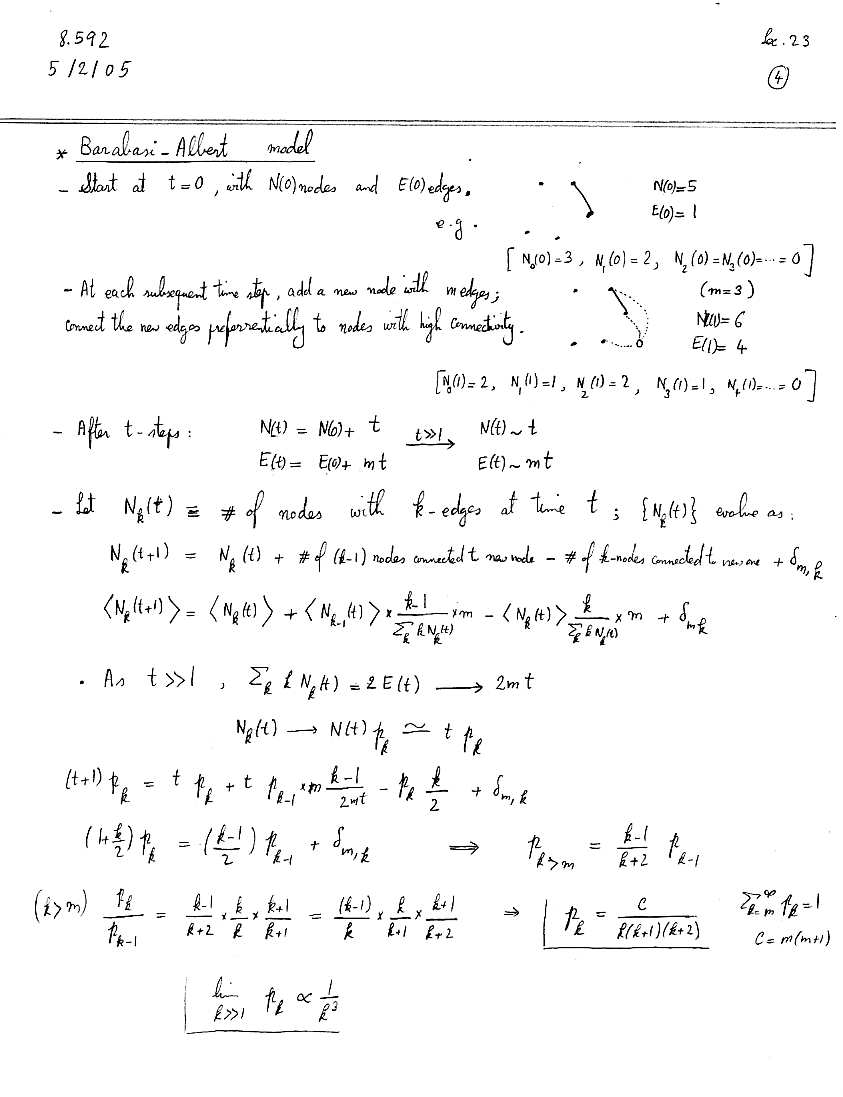 8.592
lec. 23
5/2/05
④
* Barabasi-Albert model
- Start at t=0, with N(0) nodes and E(0) edges.
N(0)=5
E(0)=1
e.g.
[N₀(0)=3, N₁(0)=2, N₂(0)=N₃(0)=⋯=0]
- At each subsequent time step, add a new node with m edges;
(m=3)
connect the new edges preferrentially to nodes with high connectivity.
N(1)=6
E(1)=4
[N₀(1)=2, N₁(1)=1, N₂(1)=2, N₃(1)=1, N₄(1)=⋯=0]
- After t-steps: N(t) = N(0)+ t t≫1→ N(t)~t
E(t)= E(0)+ mt E(t)~mt
- Let N_k(t) ≡ # of nodes with k-edges at time t ; {N_k(t)} evolve as:
N_k(t+1) = N_k(t) + # of (k-1) nodes connected t new node - # of k-nodes connected t new one + δ_{m,k}
⟨N_k(t+1)⟩ = ⟨N_k(t)⟩ + ⟨N_{k-1}(t)⟩ × (k-1)/(Σ_k k N_k(t)) × m - ⟨N_k(t)⟩ k/(Σ_k k N_k(t)) × m + δ_{mk}
· As t≫1 , Σ_k k N_k(t) = 2E(t) → 2mt
N_k(t) → N(t) p_k ≃ t p_k
(t+1) p_k = t p_k + t p_{k-1} × m (k-1)/(2mt) - p_k k/2 + δ_{m,k}
(1+k/2) p_k = ((k-1)/2) p_{k-1} + δ_{m,k} ⟹ p_{k>m} = (k-1)/(k+2) p_{k-1}
(k>m) p_k/p_{k-1} = (k-1)/(k+2) × k/k × (k+1)/(k+1) = (k-1)/k × k/(k+1) × (k+1)/(k+2) ⇒ p_k = C/(k(k+1)(k+2)) Σ_{k=m}^∞ p_k=1
C= m(m+1)
lim_{k≫1} p_k ∝ 1/k³